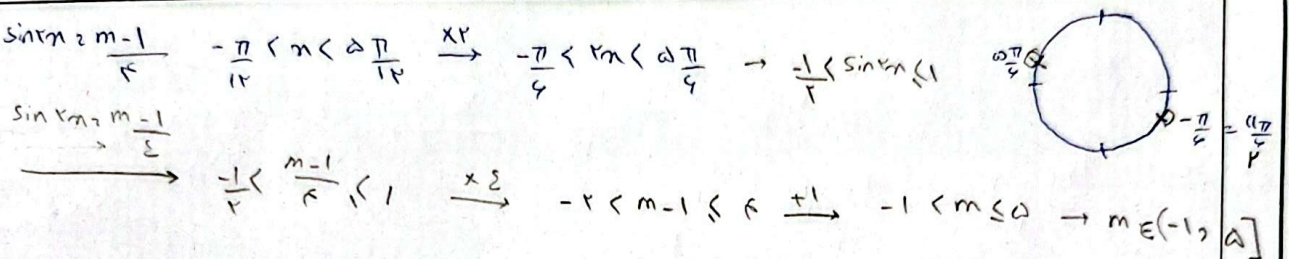 sin۲x = m-1/۴   -π/۱۲ < x < ۵π/۱۲   ×۲→   -π/۶ < ۲x < ۵π/۶   →   -1/۲ < sin۲x ≤ 1   ۵π/۶   -π/۶ = ۱۱π/۶
sin۲x = m-1/٤ →   -1/۲ < m-1/۴ ≤ 1   ×٤→   -۲ < m-1 ≤ ۴   +1→   -1 < m ≤ ۵   →   m ∈ (-1, ۵]